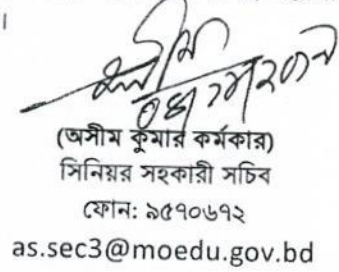 ।
(অসীম কুমার কর্মকার)
সিনিয়র সহকারী সচিব
ফোন: ৯৫৭০৬৭২
as.sec3@moedu.gov.bd